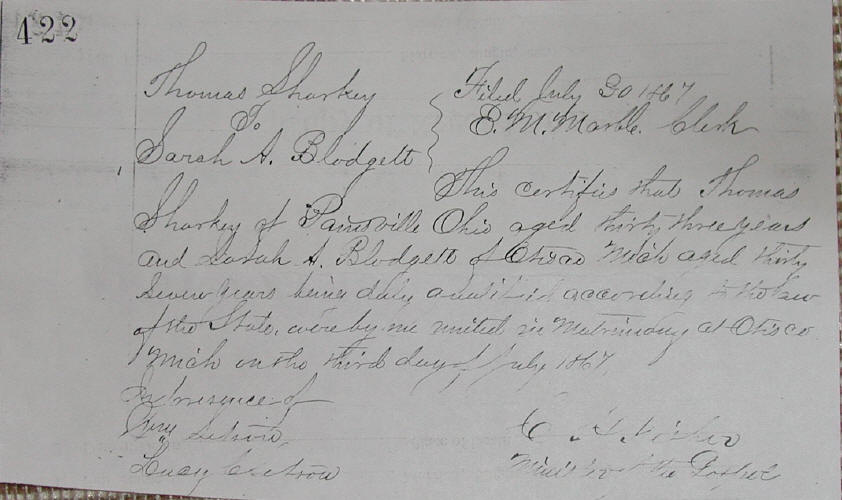 422
Thomas Sharkey
To
Sarah A. Blodgett
Filed July 30 1867
E. M. Marble. Clerk
This certifies that Thomas
Sharkey of Painsville Ohio aged thirty three years
and Sarah A. Blodgett of Otisco Mich aged thirty
Seven years being duly qualified according to the law
of the State, were by me united in Matrimony at Otisco
Mich on the third day of July 1867.
In Presence of
Lucy
Minister of the Gospel